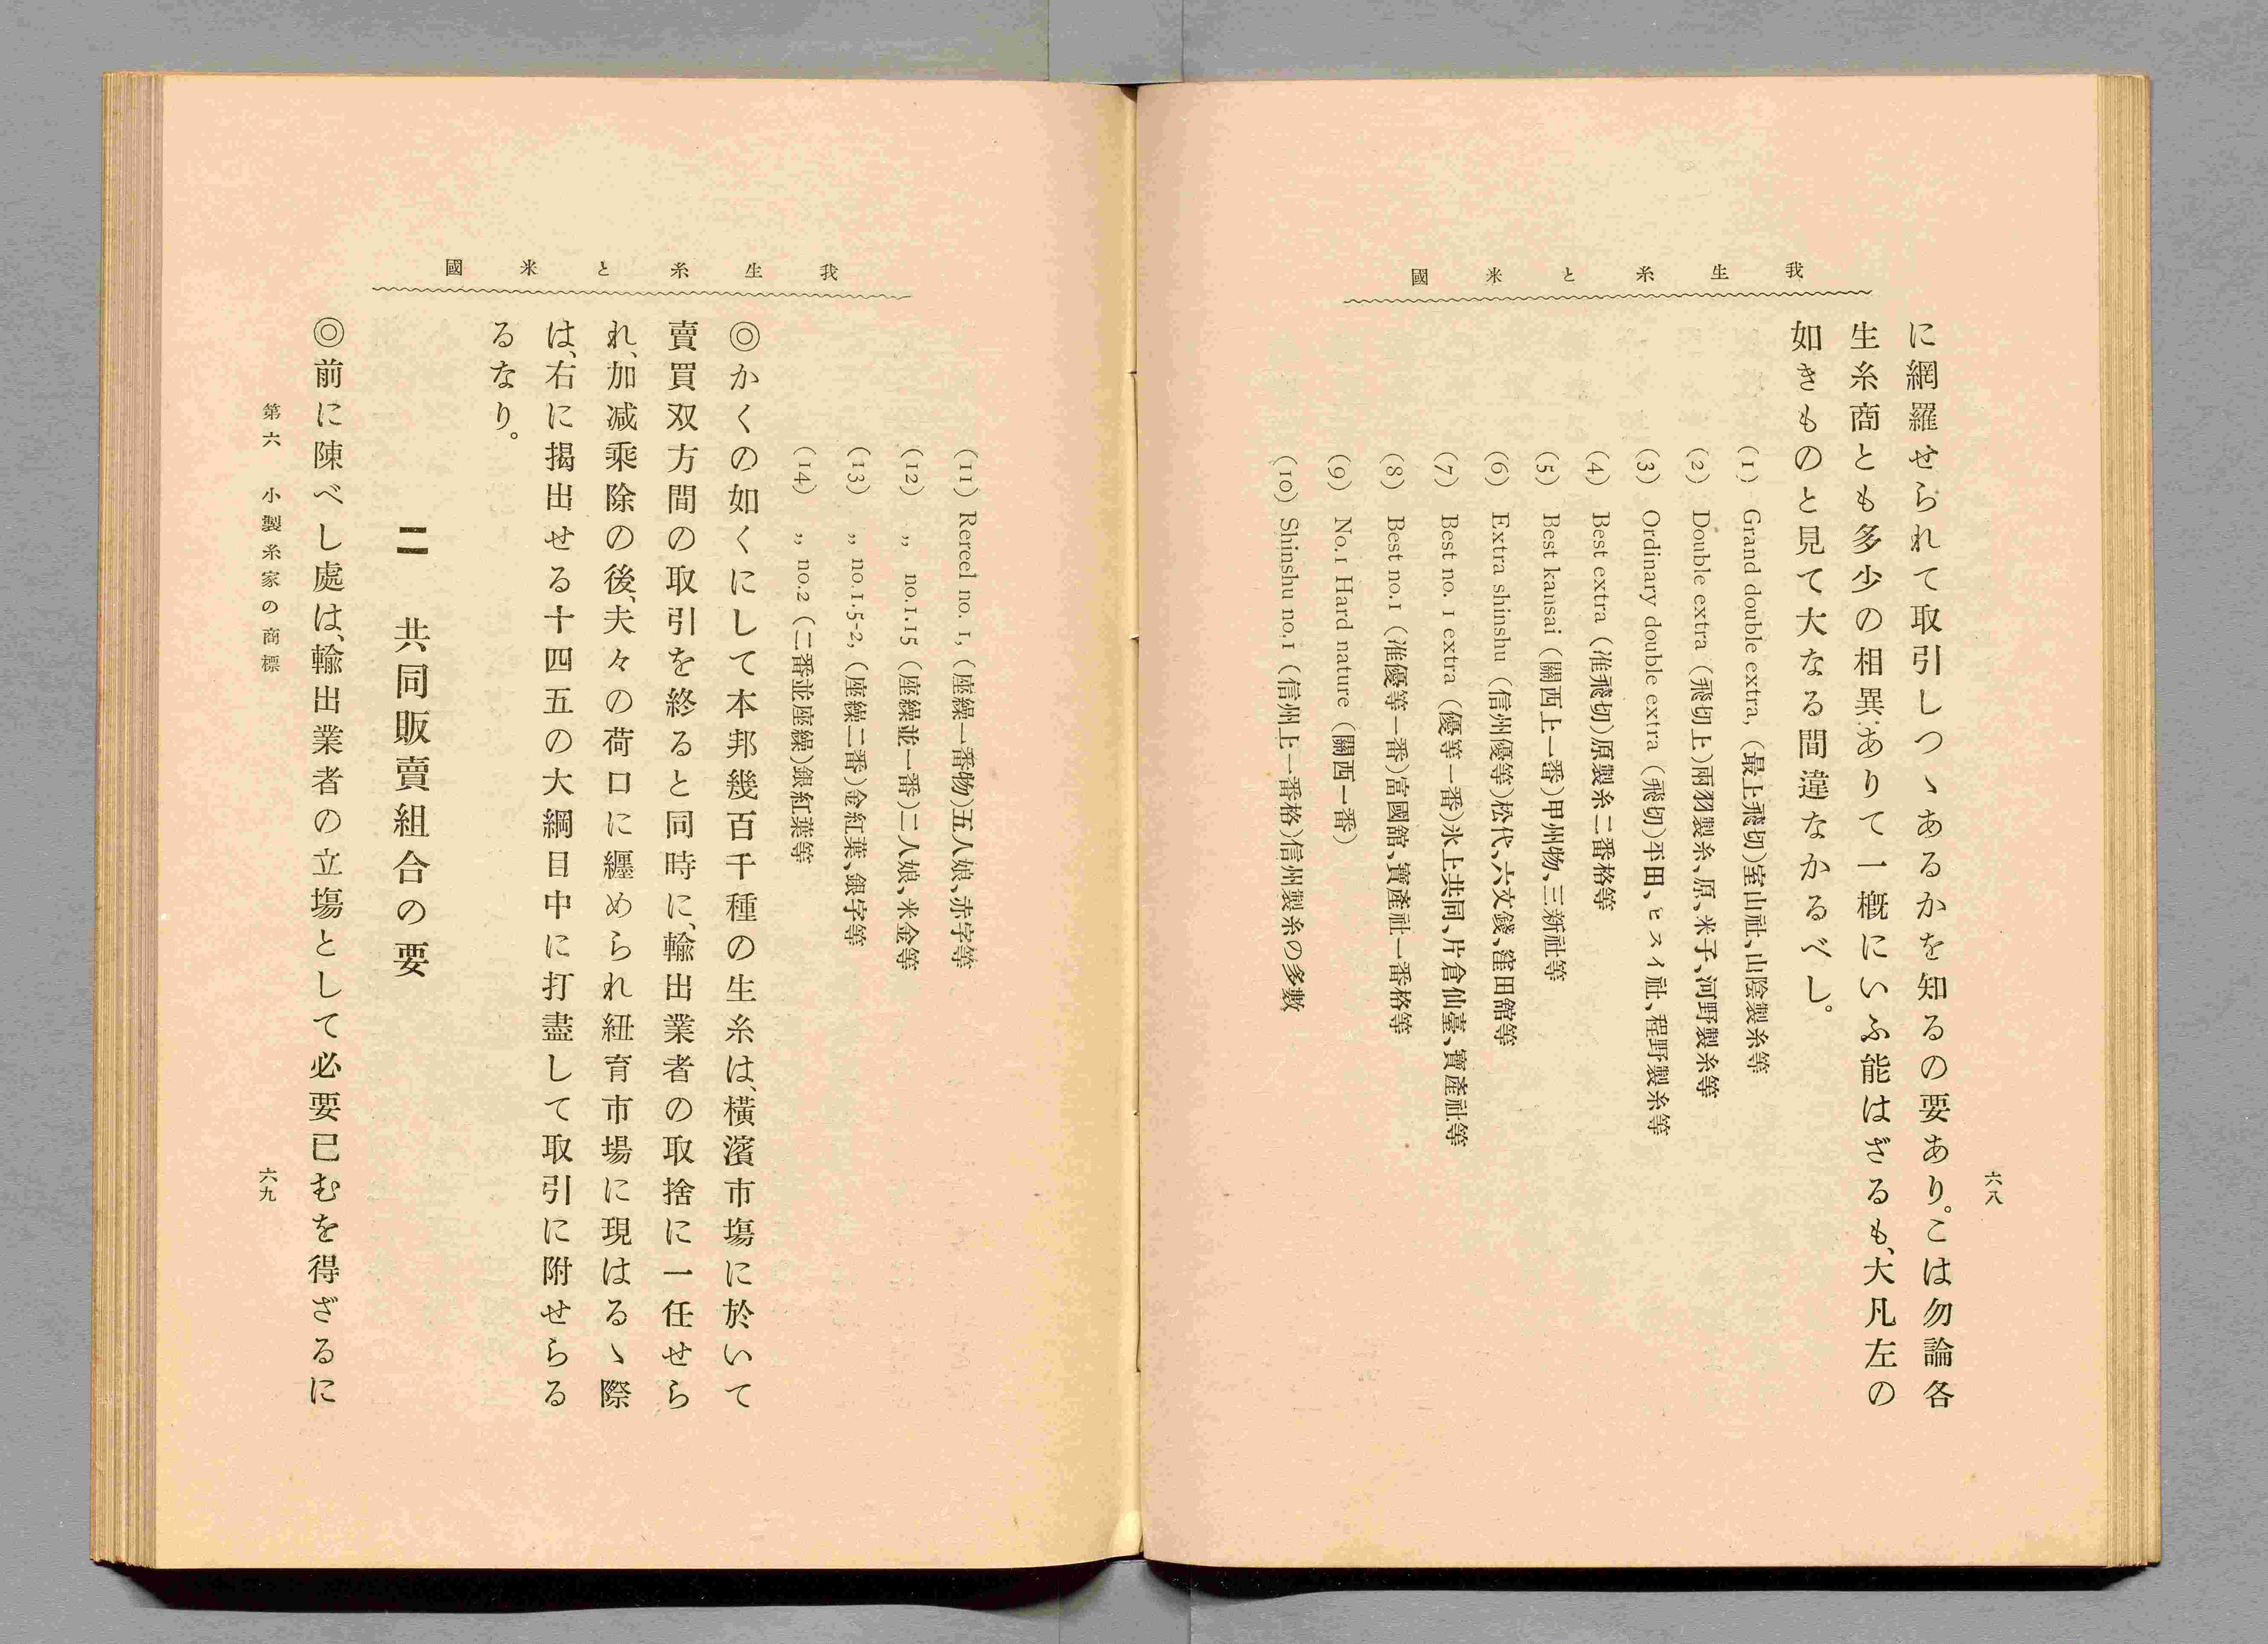 我生糸と米國
六八
に網羅せられて取引しつゝあるかを知るの要あり。こは勿論各
生糸商とも多少の相異ありて一概にいふ能はざるも、大凡左の
如きものと見て大なる間違なかるべし。
(1) Grand double extra, (最上飛切)室山社、山陰製糸等
(2) Double extra (飛切上)兩羽製糸、原、米子、河野製糸等
(3) Ordinary double extra (飛切)平田、ヒスイ社、程野製糸等
(4) Best extra (准飛切)原製糸二番格等
(5) Best kansai (關西上一番)甲州物、三新社等
(6) Extra shinshu (信州優等)松代、六文錢、窪田舘等
(7) Best no. 1 extra (優等一番)氷上共同、片倉仙臺、寶產社等
(8) Best no.1 (准優等一番)富國舘、寶產社一番格等
(9) No.1 Hard nature (關西一番)
(10) Shinshu no.1 (信州上一番格)信州製糸の多數
我生糸と米國
(11) Rereel no. 1, (座繰一番物)五人娘、赤字等
(12) ,, no.1.15 (座繰並一番)二人娘、米金等
(13) ,, no.1.5-2, (座繰二番)金紅葉、銀字等
(14) ,, no.2 (二番並座繰)銀紅葉等
◎かくの如くにして本邦幾百千種の生糸は、橫濱市塲に於いて
賣買双方間の取引を終ると同時に、輸出業者の取捨に一任せら
れ、加减乘除の後、夫々の荷口に纒められ紐育市場に現はるゝ際
は、右に揭出せる十四五の大綱目中に打盡して取引に附せらる
るなり。
二 共同販賣組合の要
◎前に陳べし處は、輸出業者の立塲として必要已むを得ざるに
第六 小製糸家の商標
六九